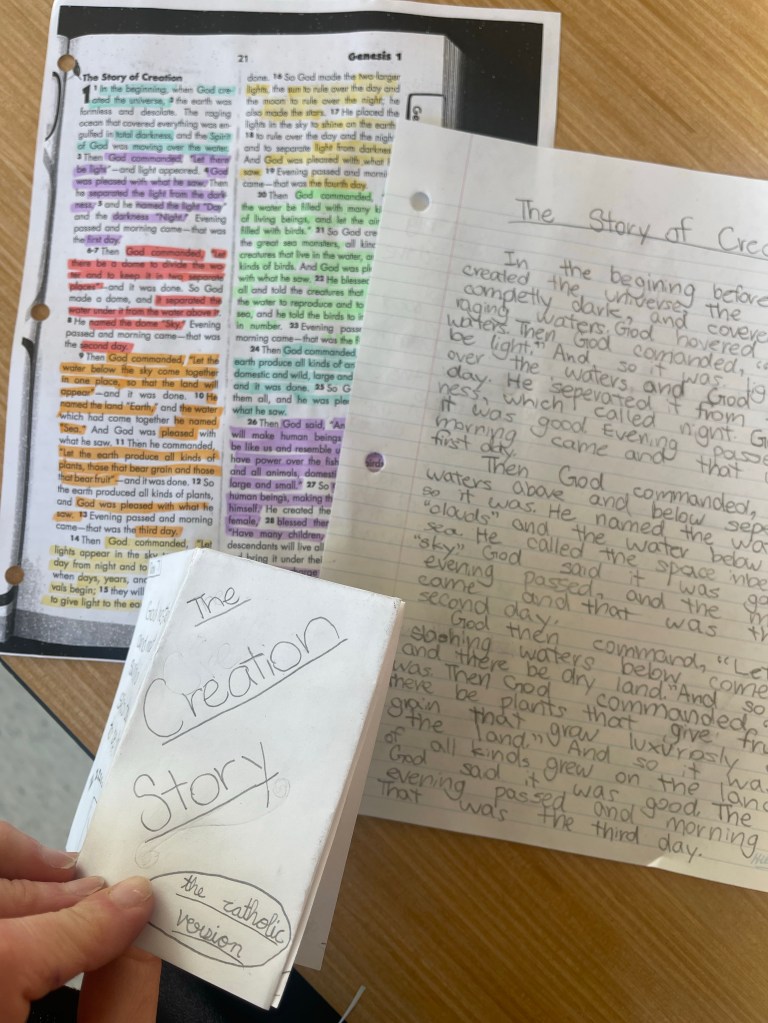 21
Genesis 1
The Story of Creation
1 1 In the beginning, when God cre-
ated the universe, 2 the earth was
formless and desolate. The raging
ocean that covered everything was en-
gulfed in total darkness, and the Spirit
of God was moving over the water.
3 Then God commanded, "Let there
be light"—and light appeared. 4 God
was pleased with what he saw. Then
he separated the light from the dark-
ness, 5 and he named the light "Day"
and the darkness "Night." Evening
passed and morning came—that was
the first day.
6-7 Then God commanded, "Let
there be a dome to divide the wa-
ter and to keep it in two separate
places"—and it was done. So God
made a dome, and it separated the
water under it from the water above it.
8 He named the dome "Sky." Evening
passed and morning came—that was
the second day.
9 Then God commanded, "Let the
water below the sky come together
in one place, so that the land will
appear"—and it was done. 10 He
named the land "Earth," and the water
which had come together he named
"Sea." And God was pleased with
what he saw. 11 Then he commanded,
"Let the earth produce all kinds of
plants, those that bear grain and those
that bear fruit"—and it was done. 12 So
the earth produced all kinds of plants,
and God was pleased with what he
saw. 13 Evening passed and morning
came—that was the third day.
14 Then God commanded, "Let
lights appear in the sky
day from night and to
when days, years, and
vals begin; 15 they will
to give light to the ea
done. 16 So God made the two larger
lights, the sun to rule over the day and
the moon to rule over the night; he
also made the stars. 17 He placed the
lights in the sky to shine on the earth
18 to rule over the day and the night
and to separate light from darkness
And God was pleased with what
saw. 19 Evening passed and morni
came—that was the fourth day.
20 Then God commanded,
the water be filled with many ki
of living beings, and let the air
filled with birds." 21 So God cre
the great sea monsters, all kind
creatures that live in the water, an
kinds of birds. And God was pl
with what he saw. 22 He blessed
all and told the creatures that
the water to reproduce and to
sea, and he told the birds to in
in number. 23 Evening passe
morning came—that was the f
24 Then God commanded
earth produce all kinds of an
domestic and wild, large and
and it was done. 25 So G
them all, and he was ple
what he saw.
26 Then God said, "An
will make human beings
be like us and resemble u
have power over the fish
and all animals, domesti
large and small." 27 So
human beings, making th
himself. He created the
female, 28 blessed ther
"Have many children,
descendants will live all
bring it under thei
Ge
birds
The Story of Crea
In the begining before
created the universe, the
completly dark, and covere
raging waters. God hovered
waters. Then God comanded,
be light." And so it was.
over the waters, and God
day. He seperated it from
ness, which called night. G
it was good. Evening passe
morning came and that
first day.
Then God commanded,
waters above and below sepe
so it was. He named the wa
"clouds" and the water below
sea. He called the space inbe
"sky" God said it was go
evening passed, and the m
came and that was th
second day.
God then command, "Let
sloshing waters below, come
and there be dry land." And so
was. Then God commanded,
there be plants that give fru
grain that grow luxurosly
the land." And so it wa
of all kinds grew on the land
God said it was good. The
evening passed and morning
That was the third day.
The
Creation
Story
the catholic
version